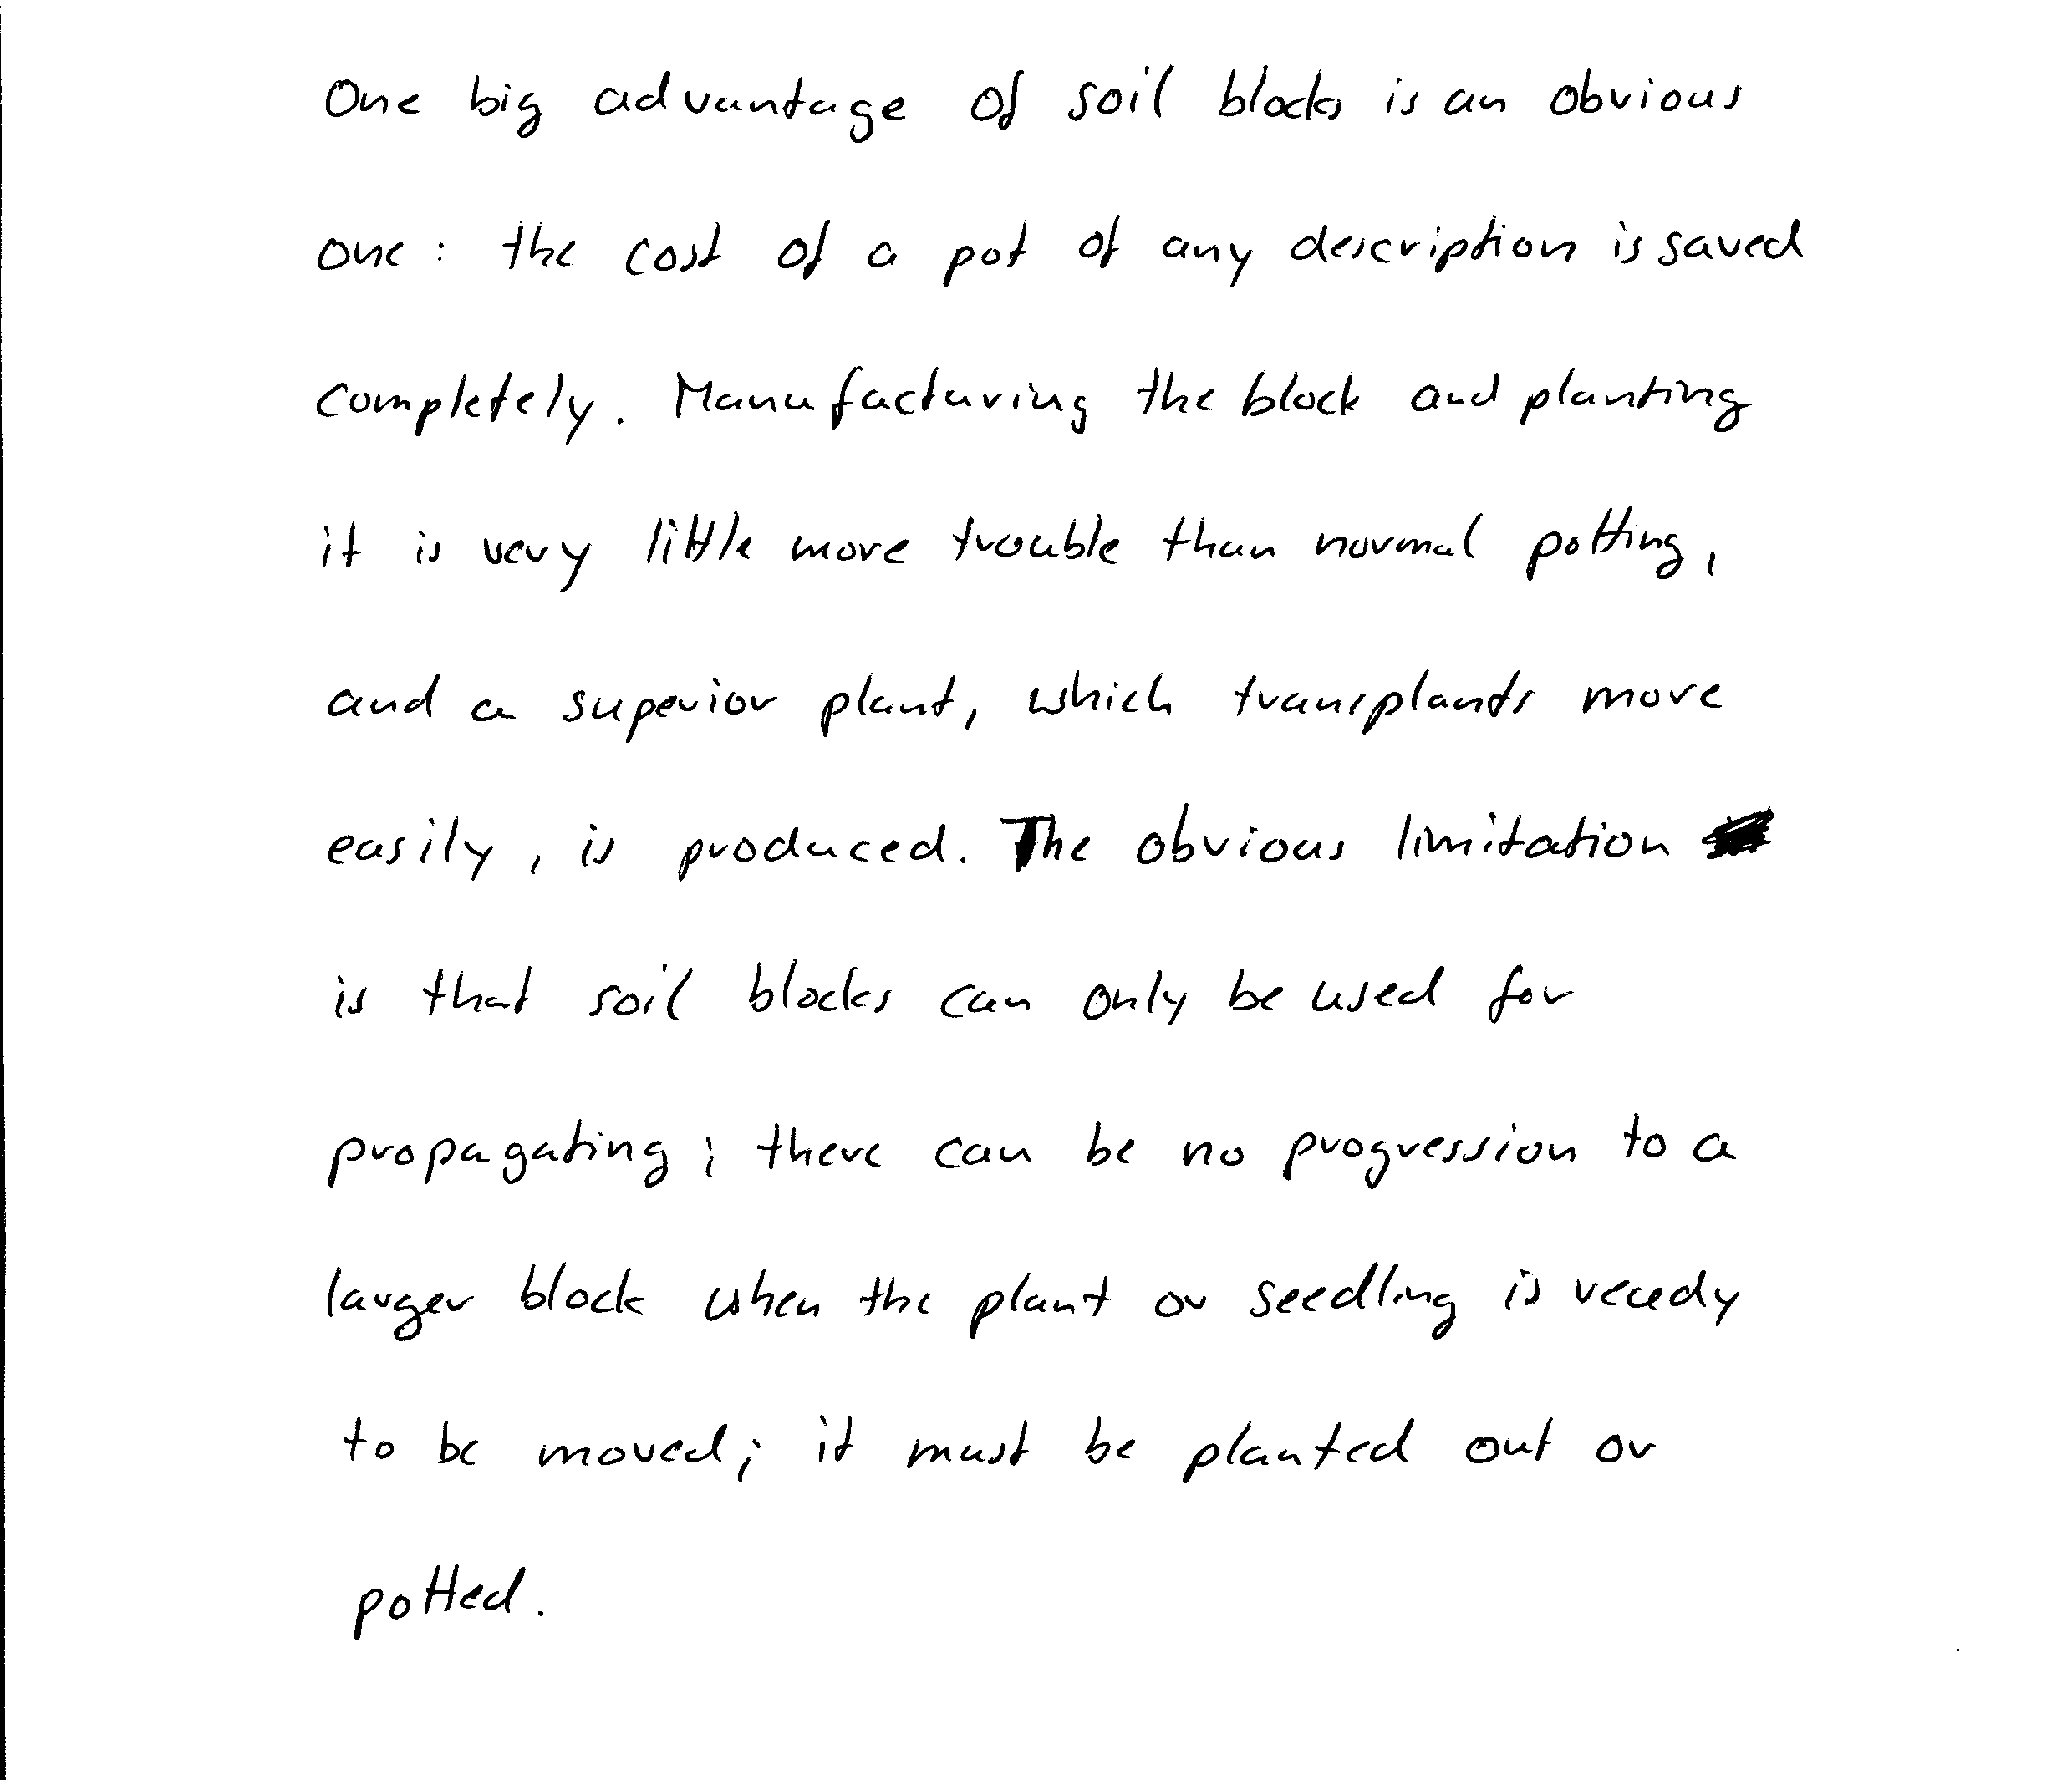 One big advantage of soil blocks is an obvious
one : the cost of a pot of any description is saved
completely. Manufacturing the block and planting
it is very little more trouble than normal potting,
and a superior plant, which transplants more
easily, is produced. The obvious limitation
is that soil blocks can only be used for
propagating ; there can be no progression to a
larger block when the plant or seedling is ready
to be moved ; it must be planted out or
potted.